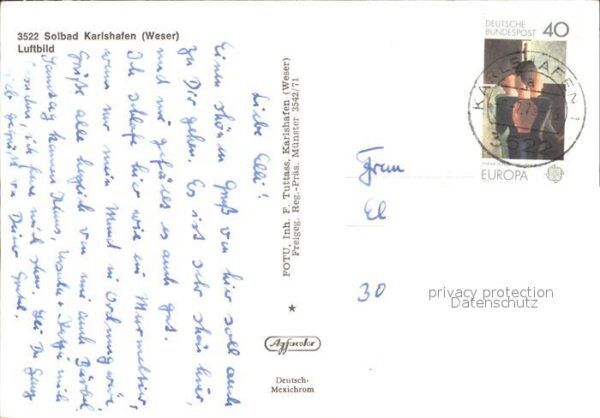 3522 Solbad Karlshafen (Weser)
Luftbild
Liebe Elli!
Einen schönen Gruß von hier soll auch
zu Dir gehen. Es ist sehr schön hier,
und mir gefällt es auch gut.
Ich schlafe hier wie ein Murmeltier,
wenn nur mein Mund in Ordnung wäre
Grüße alle herzlich von mir auch Bärbel.
Samstag kamen Klaus, Ursula +
ich freue mich schon. Sei Du ganz
gegrüßt von Deiner
FOTU, Inh. F. Tuttass, Karlshafen (Weser)
Freigeg. Reg.-Präs. Münster 3542/71
Agfacolor
Deutsch-
Mexichrom
DEUTSCHE
BUNDESPOST
40
EUROPA
KARLSHAFEN 1
3522
Frau
El
30
privacy protection
Datenschutz